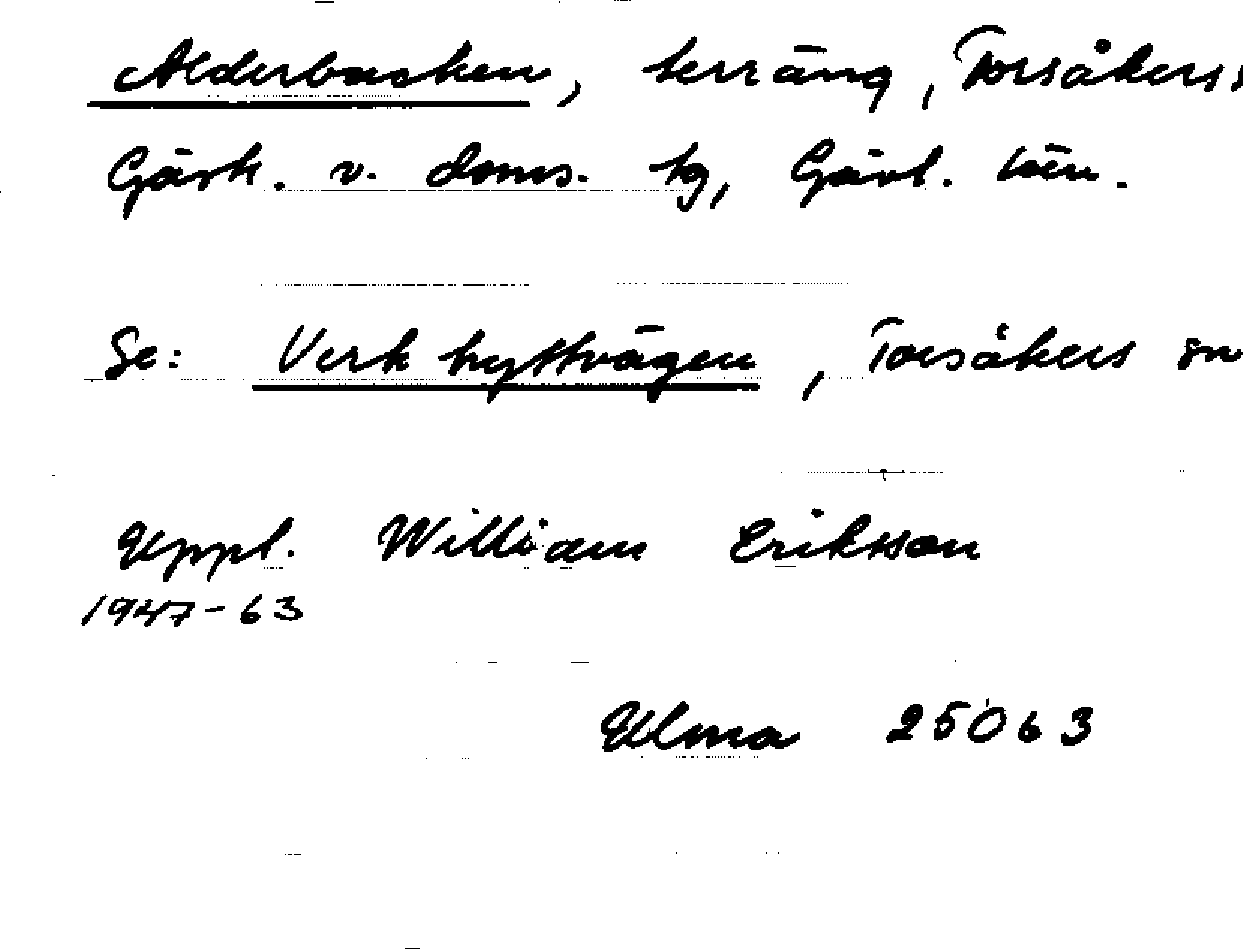 Alderbacken, terräng, Torsåkers s
Gästr. v. doms. tg, Gävl. län.
Se: Verkhyttvägen, Torsåkers sn
Uppl. William Eriksson
1947-63
Ulma 25063